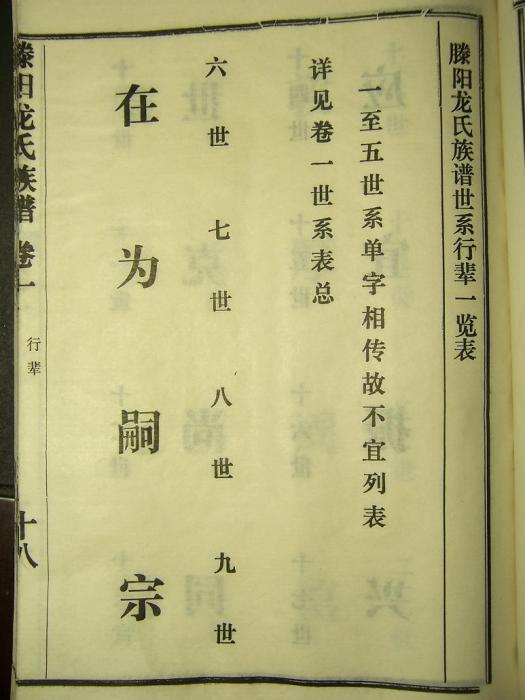 滕阳龙氏族谱世系行辈一览表
一至五世系单字相传故不宜列表
详见卷一世系表总
六世 七世 八世 九世
在 为 嗣 宗
滕阳龙氏族谱 卷一
行辈
十八